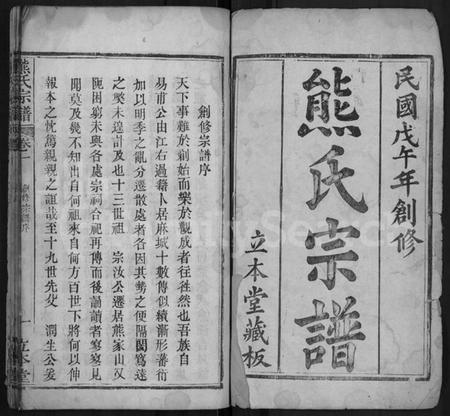 民國戊午年創修
熊氏宗譜
立本堂藏板
創修宗譜序
天下事難於創始而樂於觀成者往往然也吾族自
易甫公由江右過籍卜居麻城十數傳似續漸形蕃衍
加以明季之亂分遷散處者各因其勢之便隔閡寫遠
之獎未遑計及也十三世祖 宗汝公遷居熊家山又
匝困窮未興各處宗祠合祀再傳而後誦讀者寥寥見
聞莫及幾不知出自何祖來自何方百世下將何以伸
報本之忱篤親親之誼哉至十九世先父 潤生公爰
熊氏宗譜
卷一
創修宗譜序
一
立本堂